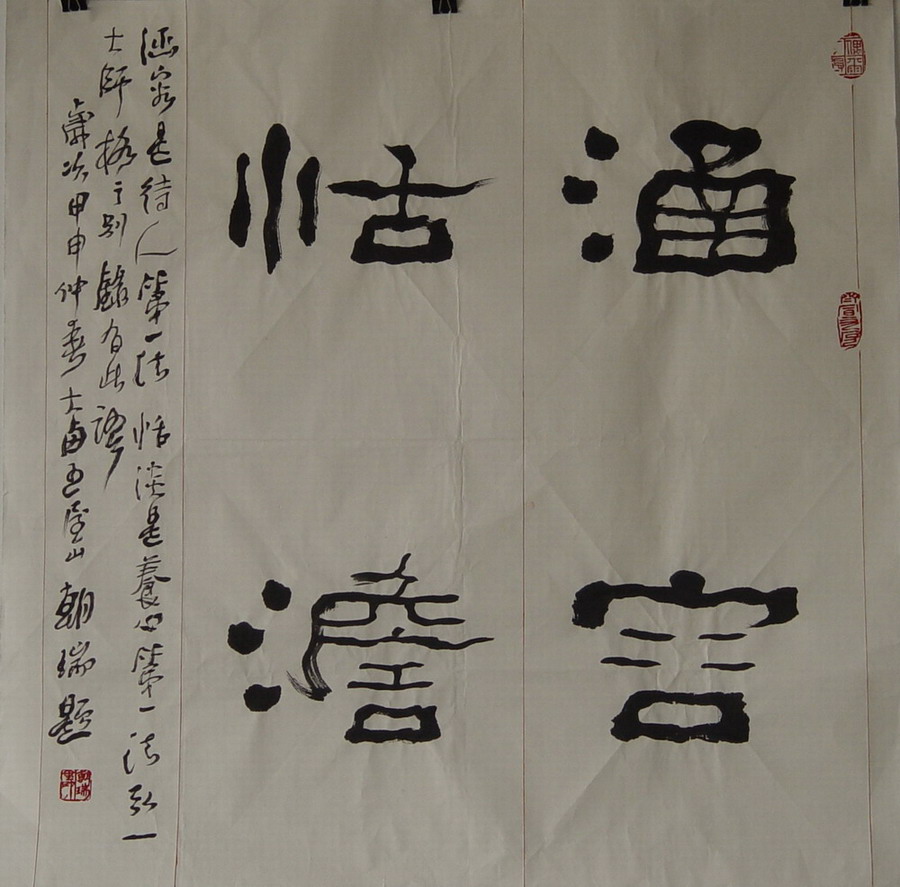 涵容
恬澹
涵容是待人第一法恬淡是養心第一法弘一
大師格言别錄有此語
歲次甲申仲春王屋山朝瑞題